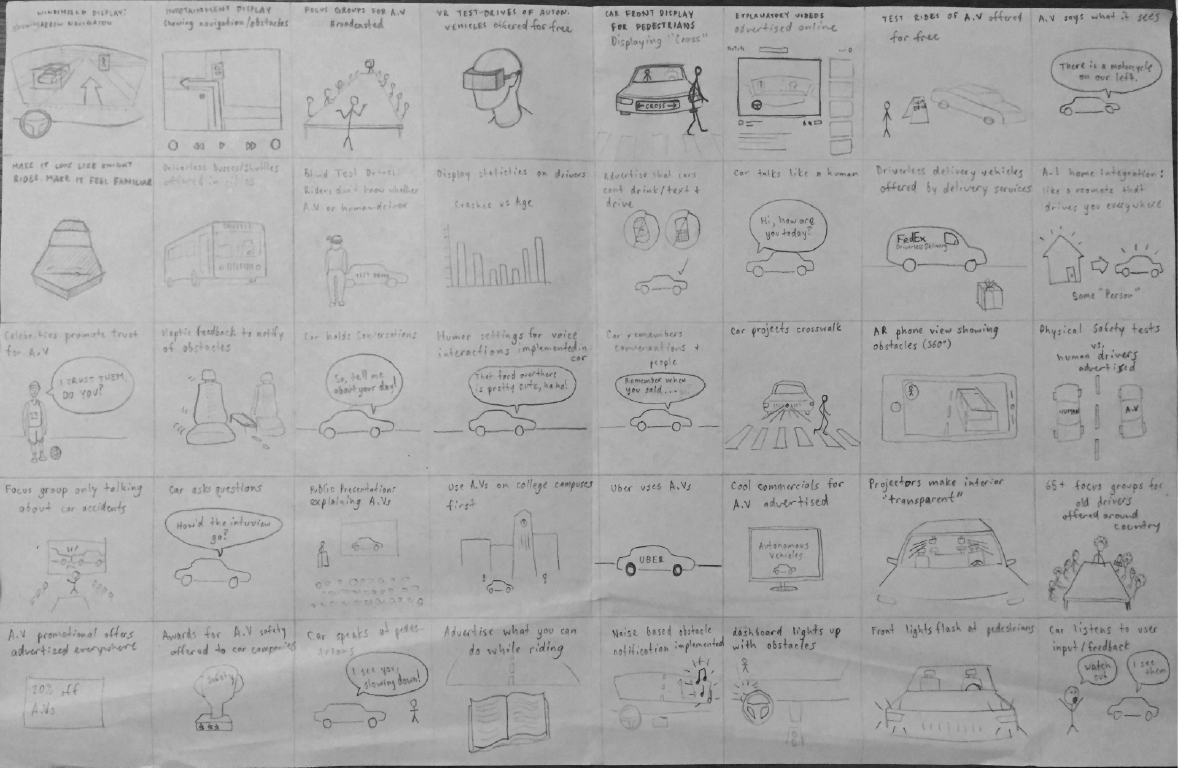 WINDSHIELD DISPLAY:
NAVIGATION
INFOTAINMENT DISPLAY
Showing navigation/obstacles
FOCUS GROUPS FOR A.V
Broadcasted
VR TEST-DRIVES OF AUTON.
VEHICLES offered for free
CAR FRONT DISPLAY
FOR PEDESTRIANS
Displaying "Cross"
CROSS
EXPLANATORY VIDEOS
advertised online
TEST RIDES OF A.V offered
for free
A.V says what it sees
There is a motorcycle
on our left.
MAKE IT LOOK LIKE KNIGHT
RIDER. MAKE IT FEEL FAMILIAR
Driverless Busses/Shuttles
offered in cities
Blind Test Drives
Riders don't know whether
A.V. or human-driver
TEST DRIVE
Display statistics on drivers
Crashes vs Age
Advertise that cars
cant drink/text &
drive
Car talks like a human
Hi, how are
you today?
Driverless delivery vehicles
offered by delivery services
FedEx
Driverless Delivery
A.I home Integration:
like a roomate that
drives you everywhere
Same "Person"
Celebrities promote trust
for A.V
I TRUST THEM,
DO YOU?
Haptic feedback to notify
of obstacles
Car holds Conversations
So, tell me
about your day!
Humor settings for voice
interactions implemented in
car
That ford over there
is pretty cute, haha!
Car remembers
conversations &
people
Remember when
you said....
Car projects crosswalk
AR phone view showing
obstacles (360°)
Physical Safety tests
vs.
human drivers
advertised
HUMAN
A.V
Focus group only talking
about car accidents
Car asks questions
How'd the interview
go?
Public Presentations
explaining A.Vs
Use A.Vs on college campuses
first
Uber uses A.Vs
UBER
Cool commercials for
A.V advertised
Autonomous
Vehicles
Projectors make interior
"transparent"
65+ focus groups for
old drivers
offered around
country
A.V promotional offers
advertized everywhere
20% off
A.Vs
Awards for A.V safety
offered to car companies
Safety
Car speaks at pedes-
trians
I see you,
slowing down!
Advertise what you can
do while riding
Noise based obstacle
notification implemented
dashboard lights up
with obstacles
Front lights flash at pedestrians
Car listens to user
input/feedback
watch
out
I see
them